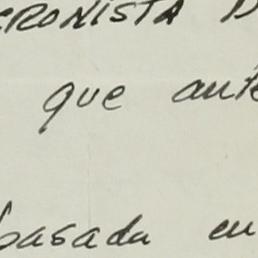 CRONISTA D
que ante
basada en